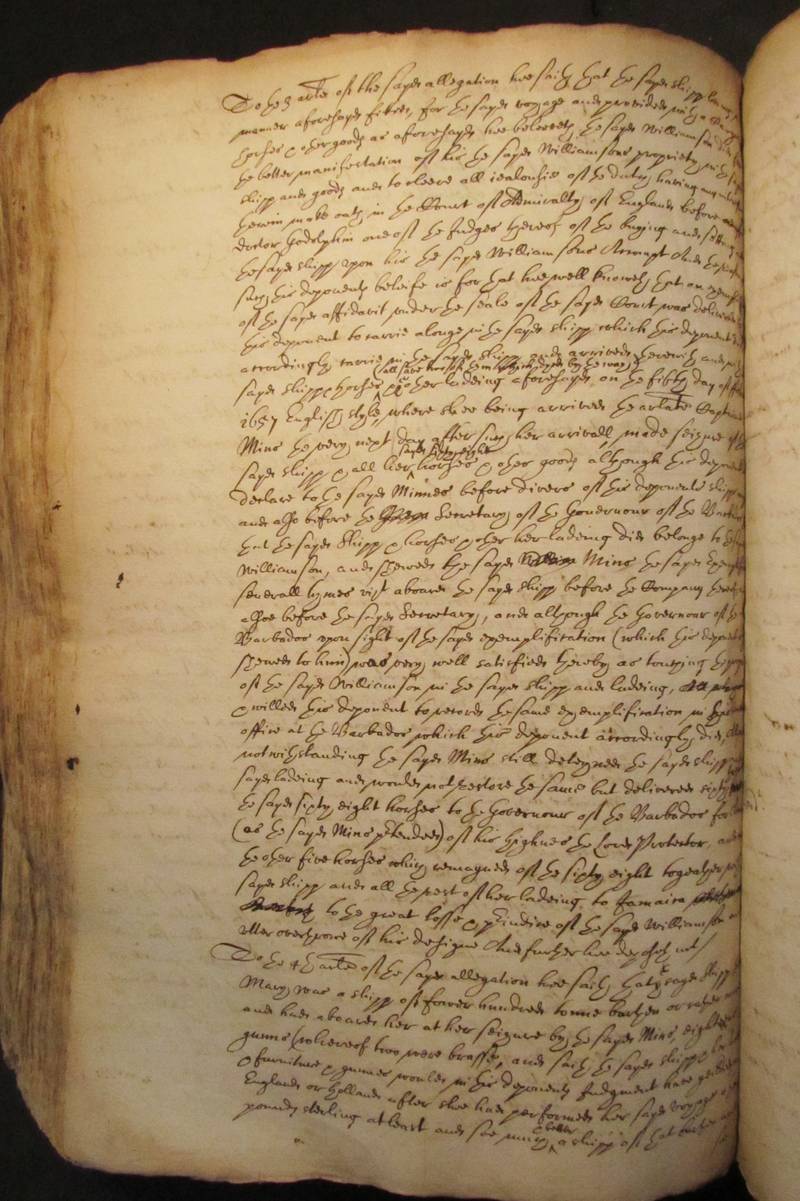 To the 3 arle of the sayd allegation hee saith that the sayd shipp being in
manner aforesayd fitted, for the sayd voyage and provided with
horses & other goods as aforesayd hee beleeveth the sayd Williamson
the better manifestation of his the sayd Williamsons propriety in the
shipp and goods and to cleere all iealousies of the dutch having
herein made oath in the Court of Admiralty of England before
doctor Godolphin one of the Judges thereof of the buying and
the sayd shipp upon his the sayd Williamsons Accompt And the
this deponents beleife is for that hee well knoweth that an
of the sayd affidavit under the seale of the sayd Court was delivered
this deponent to carrie alonge in the sayd shipp which this deponent
accordingly carrie in the sayd shipp, and arrived therewith and
(all save twelve horses which dyed by the way)
sayd shipp horses & other ladeing aforesayd, on the fifth day of
1657 English style, where shee being arrived the arlate Captaine
Mins the very next day after such her arrivall made seizure of the
sayd sixty eight
sayd shipp & all her horses & other goods although this deponent
declare to the sayd Minnes before divers of this deponents shipps
and also before the Secretary of the Governour of the Barbados
that the sayd shipp & horses & other her ladeing did belonge to the
Williamson, and shewed the sayd Mins the sayd
severall tymes vizt aboard the sayd shipp before the Company thereof
alsoe before the sayd Secretary, and although the Governour of the
Barbados upon sight of the sayd exemplification (which this deponent
shewed to him) was very well satisfied thereby as touching the
of the sayd Williamson in the sayd shipp and ladeing,
& willed this deponent to record the same exemplification in
office at the Barbados which this deponent accordingly did,
notwithstanding the sayd Mins still deteyned the sayd shipp
sayd ladeing and would not restore the same but delivered sixty
the sayd sixty eight horses to the Governour of the Barbados for
(as the sayd Mins pretended) of his highnes the Lord Protector, and
the other five horses which remayned of the sixty eight togeather
sayd shipp and all the rest of her ladeing, to Jamaica
to the great losse & prejudice of the sayd Williamson
utter overthrowe of his designe And further hee deposeth not
To the 4th arle of the sayd allegation hee saith that the sayd shipp
Mary was a shipp of fower hundred tonne burthen or
and had aboard her at her seizure by the sayd Mins eighteene
gunns (whereof two were brasse, and saith the sayd shipp
& furniture & gunnes would in this deponents Judgment have
England or Holland after shee had performed her sayd voyage
a better
pounds sterling at least and soe much a shipp of that